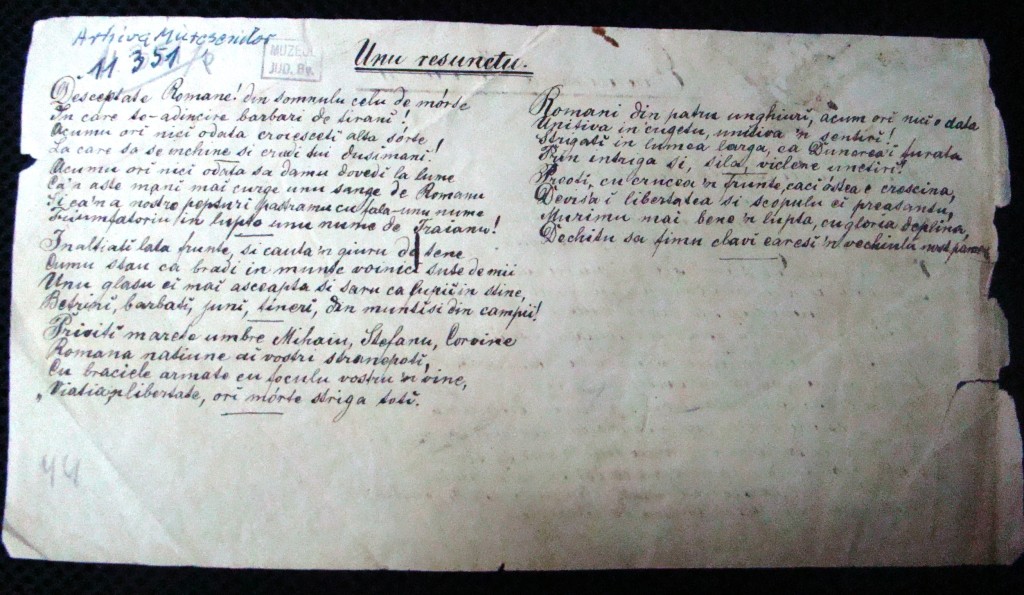 Arhiva Mureșenilor
11.351
MUZEUL
JUD. Bv.
Unu resunetu.
Desceptate Romane! din somnulu celu de mórte
In care te-adincire barbari de tirani!
Acumu ori nici odata croiesceti alta sórte!
La care sa se inchine si crudi tui dusimani!
Acumu ori nici odata sa damu dovedi la lume
Ca'n aste mani mai curge unu sange de Romanu
Si ca'n a nostre pepturi pastramu cu fala-unu nume
Triumfatoriu in lupte unu nume de Traianu!
Inaltiati lata frunte, si cauta'n giuru de tene
Cumu stau ca bradi in munte voinici sute de mii
Unu glasu ei mai asceapta si saru ca lupii in stine,
Betrini, barbati, juni, tineri, din munti si din campii!
Priviti marete umbre Mihaiu, Stefanu, Corvine
Romana natiune ai vostri stranepoti,
Cu braciele armate cu foculu vostru 'n vine,
„Viatia,n libertate, ori mórte striga toti.
Romani din patru unghiuri, acum ori nici o data
Unitiva in cugetu, unitiva 'n sentiri!
Strigati in lumea larga, ca Dunerea'i furata
Prin intriga si, sila, viclene unetiri!
Preoti, cu crucea 'n frunte, caci óstea e crescina,
Devisa'i libertatea si scopulu ei preasantu,
Murimu mai bene 'n lupta, cu gloria deplina,
Dechitu sa fimu clavi earesi 'n vechiulu nost
44